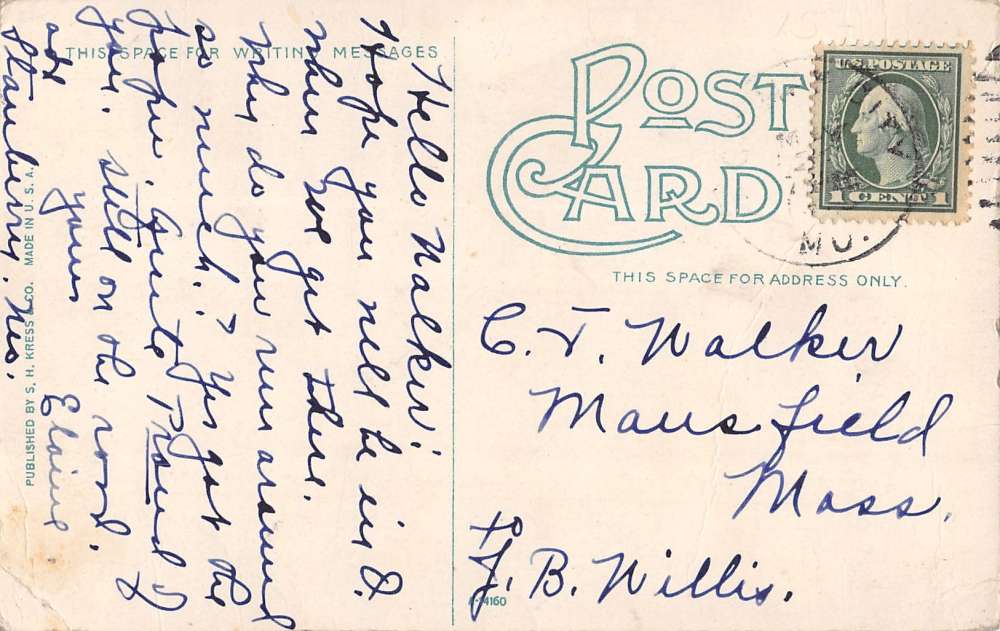 THIS SPACE FOR WRITING MESSAGES
Hello Walker.
Hope you will be in D.
when we get there.
Why do you run around
so much? Yes got the
paper. Quite Proud of
you. Still on the road.
adr
yours
Elaine
Stanberry. Mo.
PUBLISHED BY S. H. KRESS & CO. MADE IN U. S. A.
POST
CARD
U.S. POSTAGE
1 CENT 1
MO.
THIS SPACE FOR ADDRESS ONLY.
C. T. Walker
Mansfield
Mass.
℅
J. B. Willis.
A-14160